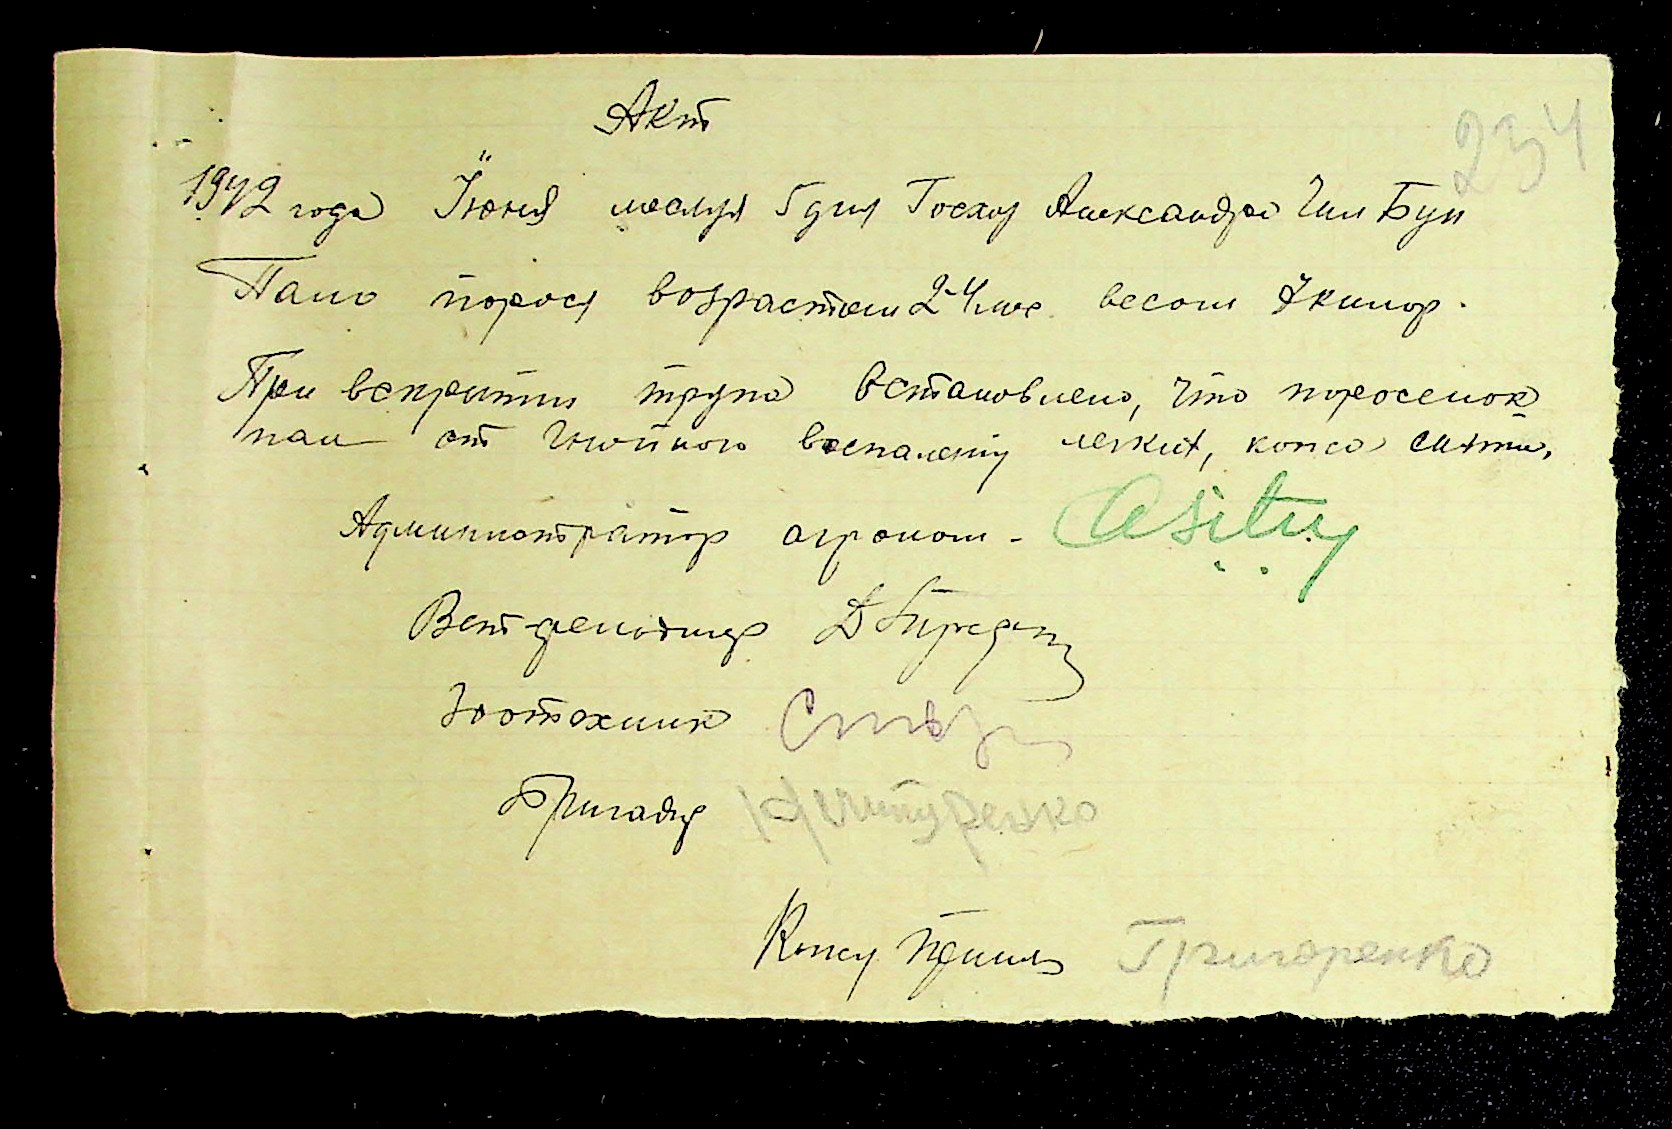 Акт
234
1942 года Июня месяця 5 дня Госхоз Александра Чил Бун
Пало порося возрастом 2-4 мес. весом 7 килогр.
При вскрытии трупа встановлено, что поросенок
пал от гнойного воспаления легких, кожа снята.
Администратор агроном -
Вет-фельдшер
Зоотехник
Бригадир
Кожу принял Григоренко